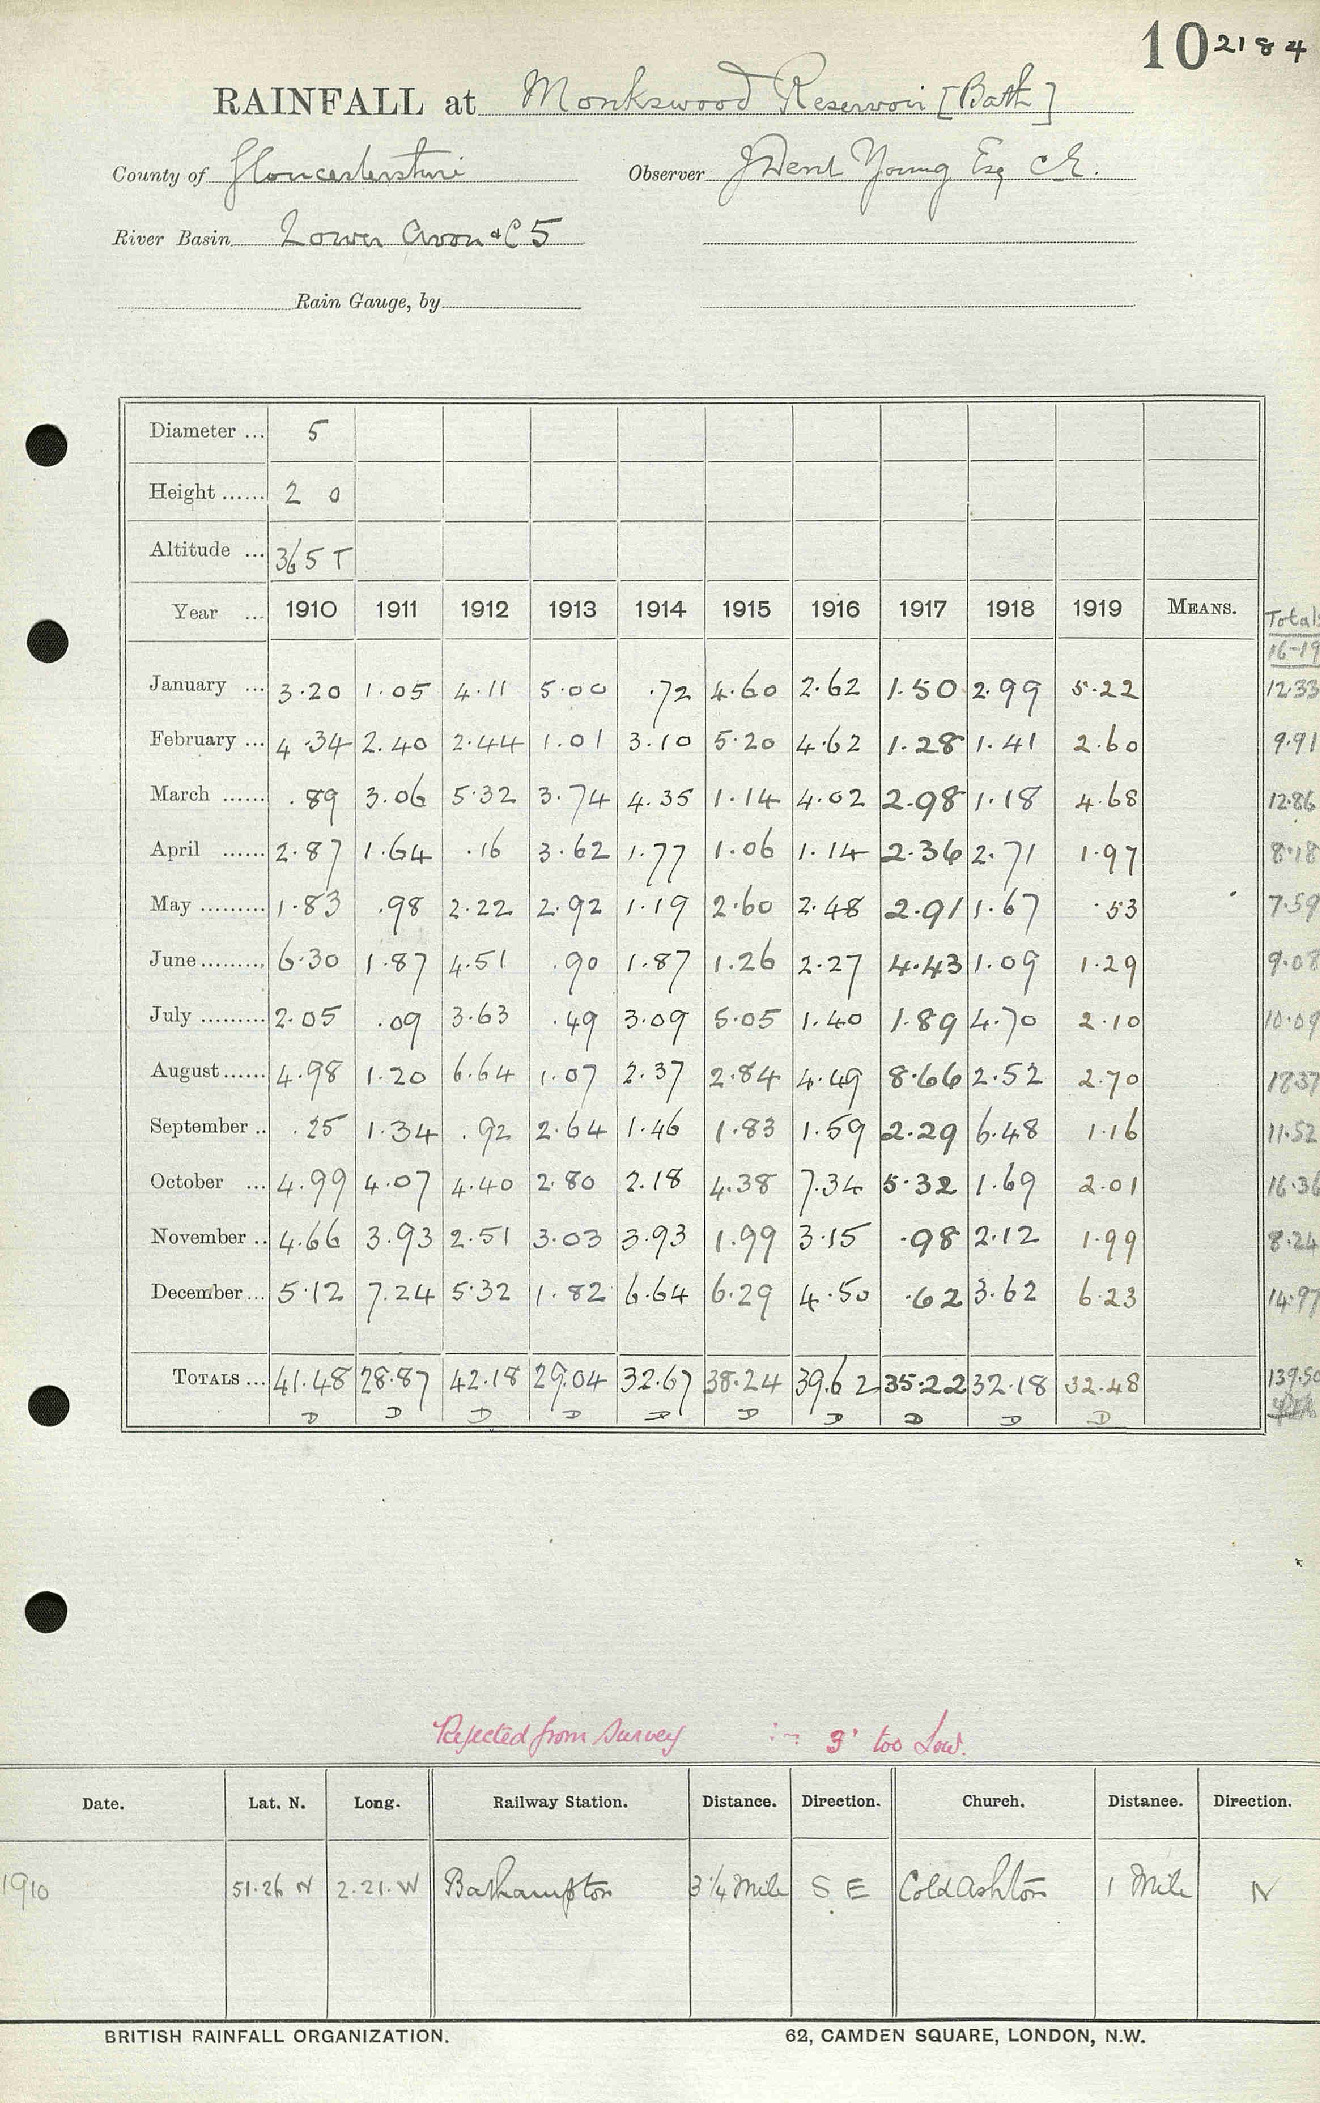 10 2184
RAINFALL at Monkswood Reservoir [Bath]
County of Gloucestershire Observer J Went Young Esq CE.
River Basin Lower Avon & C 5
Rain Gauge, by
Diameter ... 5
Height ...... 2 0
Altitude ... 365 T
Year ... 1910 1911 1912 1913 1914 1915 1916 1917 1918 1919 MEANS. Totals
16-19
January ... 3.20 1.05 4.11 5.00 .72 4.60 2.62 1.50 2.99 5.22 12.33
February ... 4.34 2.40 2.44 1.01 3.10 5.20 4.62 1.28 1.41 2.60 9.91
March ...... .89 3.06 5.32 3.74 4.35 1.14 4.02 2.98 1.18 4.68 12.86
April ...... 2.87 1.64 .16 3.62 1.77 1.06 1.14 2.36 2.71 1.97 8.18
May ......... 1.83 .98 2.22 2.92 1.19 2.60 2.48 2.91 1.67 .53 7.59
June......... 6.30 1.87 4.51 .90 1.87 1.26 2.27 4.43 1.09 1.29 9.08
July ......... 2.05 .09 3.63 .49 3.09 5.05 1.40 1.89 4.70 2.10 10.09
August...... 4.98 1.20 6.64 1.07 2.37 2.84 4.49 8.66 2.52 2.70 18.37
September .. .25 1.34 .92 2.64 1.46 1.83 1.59 2.29 6.48 1.16 11.52
October ... 4.99 4.07 4.40 2.80 2.18 4.38 7.34 5.32 1.69 2.01 16.36
November .. 4.66 3.93 2.51 3.03 3.93 1.99 3.15 .98 2.12 1.99 8.24
December... 5.12 7.24 5.32 1.82 6.64 6.29 4.50 .62 3.62 6.23 14.97
TOTALS ... 41.48 28.87 42.18 29.04 32.67 38.24 39.62 35.22 32.18 32.48 139.50
D D D D D D D D D D
Rejected from Survey :- 3" too Low.
Date. Lat. N. Long. Railway Station. Distance. Direction. Church. Distance. Direction.
1910 51.26 N 2.21.W Bathampton 3¼ Mile S E Cold Ashton 1 Mile N
BRITISH RAINFALL ORGANIZATION. 62, CAMDEN SQUARE, LONDON, N.W.